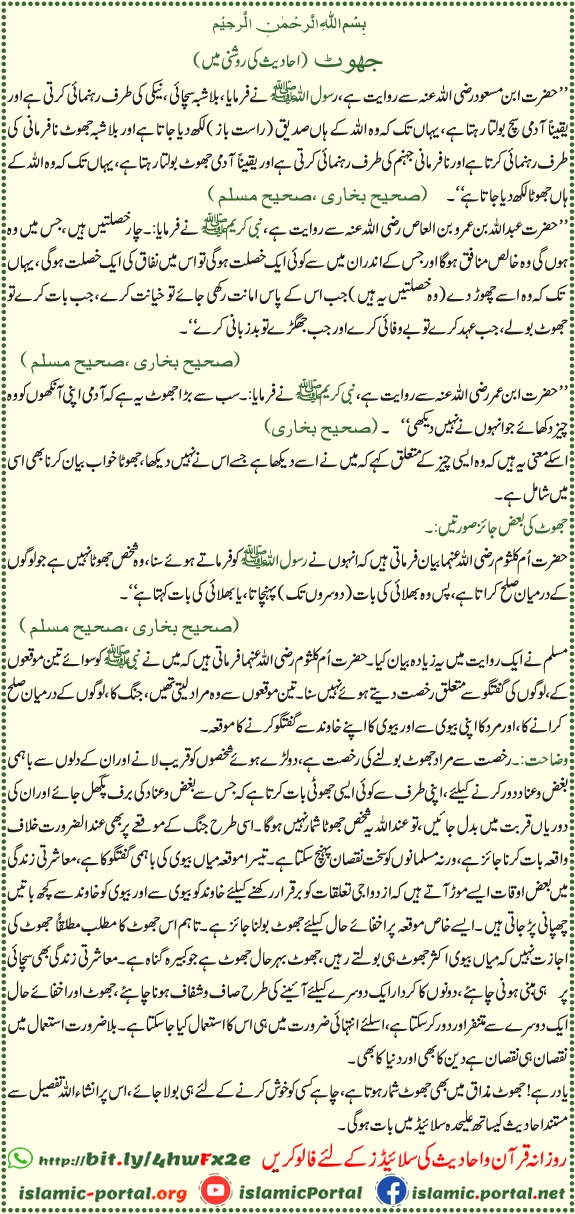 بِسْمِ اللهِ الرَّحْمٰنِ الرَّحِيْمِ
جھوٹ (احادیث کی روشنی میں)
’’حضرت ابن مسعود رضی اللہ عنہ سے روایت ہے، رسول اللہ ﷺ نے فرمایا، بلاشبہ سچائی، نیکی کی طرف رہنمائی کرتی ہے اور
یقیناً آدمی سچ بولتا رہتا ہے، یہاں تک کہ وہ اللہ کے ہاں صدیق (راست باز) لکھ دیا جاتا ہے اور بلاشبہ جھوٹ نافرمانی کی
طرف رہنمائی کرتا ہے اور نافرمانی جہنم کی طرف رہنمائی کرتی ہے اور یقیناً آدمی جھوٹ بولتا رہتا ہے، یہاں تک کہ وہ اللہ کے
ہاں جھوٹا لکھ دیا جاتا ہے‘‘۔ (صحیح بخاری ،صحیح مسلم)
’’حضرت عبداللہ بن عمرو بن العاص رضی اللہ عنہ سے روایت ہے، نبی کریم ﷺ نے فرمایا:۔ چار خصلتیں ہیں، جس میں وہ
ہوں گی وہ خالص منافق ہوگا اور جس کے اندر ان میں سے کوئی ایک خصلت ہوگی تو اس میں نفاق کی ایک خصلت ہوگی، یہاں
تک کہ وہ اسے چھوڑ دے (وہ خصلتیں یہ ہیں) جب اس کے پاس امانت رکھی جائے تو خیانت کرے، جب بات کرے تو
جھوٹ بولے، جب عہد کرے تو بے وفائی کرے اور جب جھگڑے تو بدزبانی کرے‘‘۔
(صحیح بخاری ،صحیح مسلم)
’’حضرت ابن عمر رضی اللہ عنہ سے روایت ہے، نبی کریم ﷺ نے فرمایا:۔ سب سے بڑا جھوٹ یہ ہے کہ آدمی اپنی آنکھوں کو وہ
چیز دکھائے جو انہوں نے نہیں دیکھی‘‘ ۔ (صحیح بخاری)
اسکے معنی یہ ہیں کہ وہ ایسی چیز کے متعلق کہے کہ میں نے اسے دیکھا ہے جسے اس نے نہیں دیکھا، جھوٹا خواب بیان کرنا بھی اسی
میں شامل ہے۔
جھوٹ کی بعض جائز صورتیں:۔
حضرت اُم کلثوم رضی اللہ عنہا بیان فرماتی ہیں کہ انہوں نے رسول اللہ ﷺ کو فرماتے ہوئے سنا، وہ شخص جھوٹا نہیں ہے جو لوگوں
کے درمیان صلح کراتا ہے، پس وہ بھلائی کی بات (دوسروں تک) پہنچاتا، یا بھلائی کی بات کہتا ہے‘‘۔
(صحیح بخاری ،صحیح مسلم)
مسلم نے ایک روایت میں یہ زیادہ بیان کیا۔ حضرت اُم کلثوم رضی اللہ عنہا فرماتی ہیں کہ میں نے نبی ﷺ کو سوائے تین موقعوں
کے، لوگوں کی گفتگو سے متعلق رخصت دیتے ہوئے نہیں سنا۔ تین موقعوں سے وہ مراد لیتی تھیں، جنگ کا، لوگوں کے درمیان صلح
کرانے کا، اور مرد کا اپنی بیوی سے اور بیوی کا اپنے خاوند سے گفتگو کرنے کا موقعہ۔
وضاحت:۔ رخصت سے مراد جھوٹ بولنے کی رخصت ہے، دو لڑے ہوئے شخصوں کو قریب لانے اور ان کے دلوں سے باہمی
بغض وعناد دور کرنے کیلئے، اپنی طرف سے کوئی ایسی جھوٹی بات کرتا ہے کہ جس سے بغض وعناد کی برف پگھل جائے اور ان کی
دوریاں قربت میں بدل جائیں، تو عند اللہ یہ شخص جھوٹا شمار نہیں ہوگا۔ اسی طرح جنگ کے موقعے پر بھی عندالضرورت خلاف
واقعہ بات کرنا جائز ہے، ورنہ مسلمانوں کو سخت نقصان پہنچ سکتا ہے۔ تیسرا موقعہ میاں بیوی کی باہمی گفتگو کا ہے، معاشرتی زندگی
میں بعض اوقات ایسے موڑ آتے ہیں کہ ازدواجی تعلقات کو برقرار رکھنے کیلئے خاوند کو بیوی سے اور بیوی کو خاوند سے کچھ باتیں
چھپانی پڑ جاتی ہیں۔ ایسے خاص موقعہ پر اخفائے حال کیلئے جھوٹ بولنا جائز ہے۔ تاہم اس جھوٹ کا مطلب مطلقاً جھوٹ کی
اجازت نہیں کہ میاں بیوی اکثر جھوٹ ہی بولتے رہیں، جھوٹ بہر حال جھوٹ ہے جو کبیرہ گناہ ہے۔ معاشرتی زندگی بھی سچائی
پر ہی مبنی ہونی چاہئے، دونوں کا کردار ایک دوسرے کیلئے آئینے کی طرح صاف وشفاف ہونا چاہئے، جھوٹ اور اخفائے حال
ایک دوسرے سے متنفر اور دور کر سکتا ہے، اسلئے انتہائی ضرورت میں ہی اس کا استعمال کیا جا سکتا ہے۔ بلا ضرورت استعمال میں
نقصان ہی نقصان ہے دین کا بھی اور دنیا کا بھی۔
یاد رہے! جھوٹ مذاق میں بھی جھوٹ شمار ہوتا ہے، چاہے کسی کو خوش کرنے کے لئے ہی بولا جائے، اس پر انشاء اللہ تفصیل سے
مستند احادیث کیساتھ علیحدہ سلائیڈ میں بات ہوگی۔
روزانہ قرآن و احادیث کی سلائیڈز کے لئے فالو کریں http://bit.ly/4hwFx2e
islamic-portal.org islamicPortal islamic.portal.net